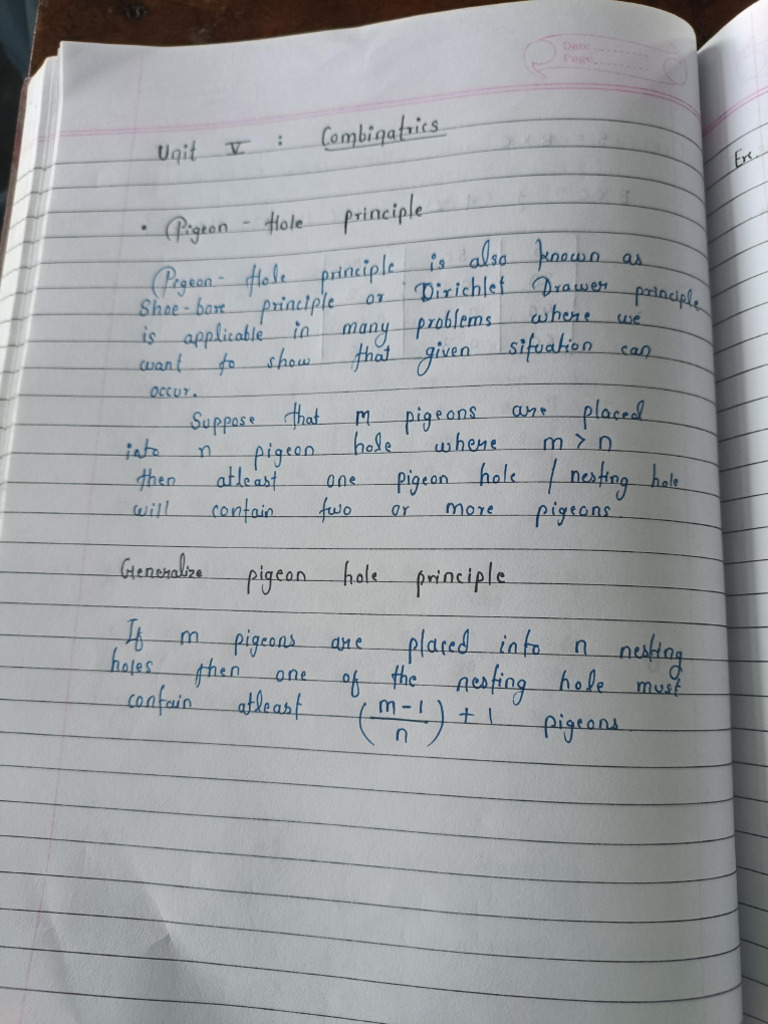 Date.........
Page.........
Unit V : Combinatrics
• Pigeon - Hole principle
Pegeon - Hole principle is also known as
Shoe-boxe principle or Dirichlet Drawer principle
is applicable in many problems where we
want to show that given situation can
occur.
Suppose that m pigeons are placed
into n pigeon hole where m > n
then atleast one pigeon hole / nesting hole
will contain two or more pigeons.
Generalize pigeon hole principle
If m pigeons are placed into n nesting
holes then one of the nesting hole must
contain atleast (m-1/n) + 1 pigeons
Exs.